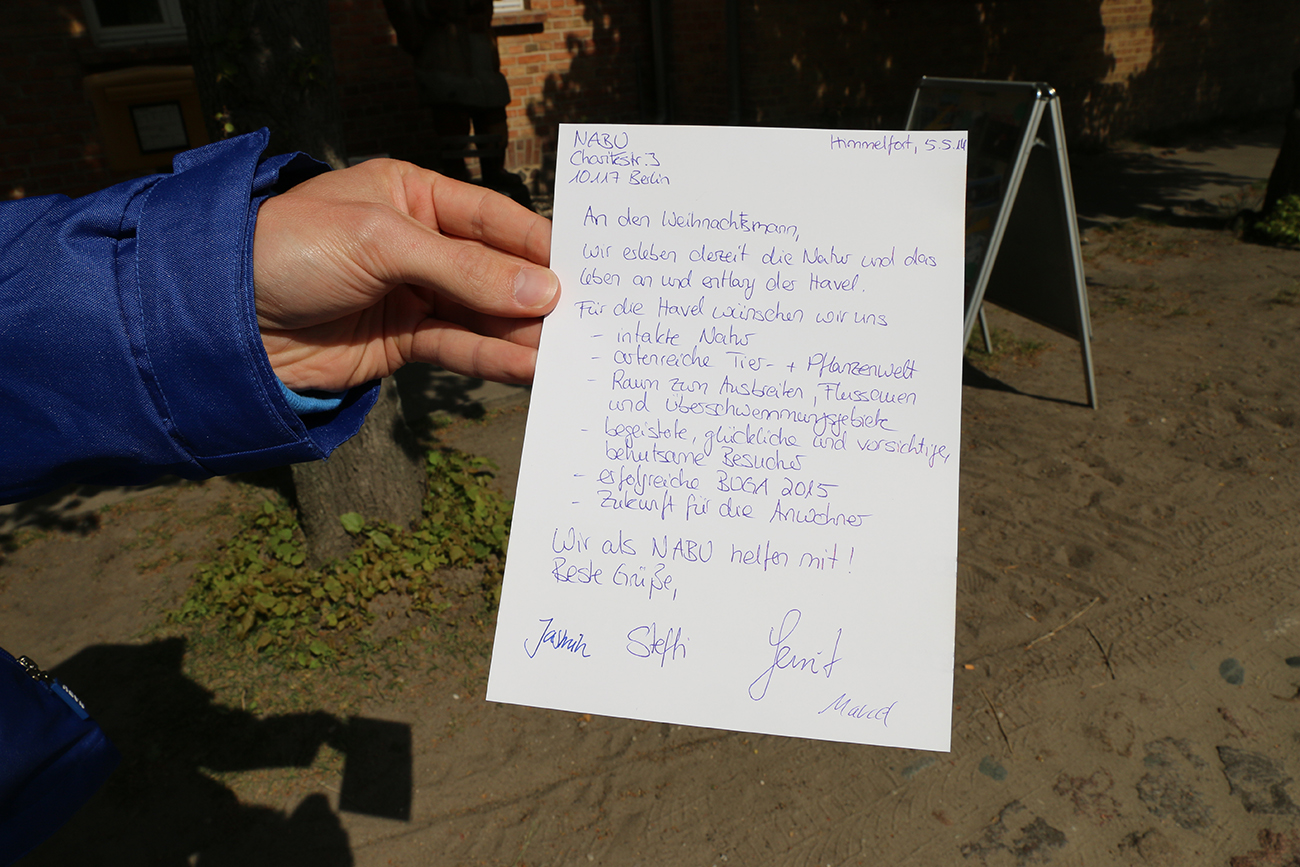 NABU
Himmelfort, 5.5.14
Charitéstr. 3
10117 Berlin
An den Weihnachtsmann,
wir erleben derzeit die Natur und das
Leben an und entlang der Havel.
Für die Havel wünschen wir uns
- intakte Natur
- artenreiche Tier- + Pflanzenwelt
- Raum zum Ausbreiten, Flussauen
und Überschwemmungsgebiete
- begeisterte, glückliche und vorsichtige,
behutsame Besucher
- erfolgreiche BUGA 2015
- Zukunft für die Anwohner
Wir als NABU helfen mit!
Beste Grüße,
Jasmin Steffi Gerrit
Marcel
NABU